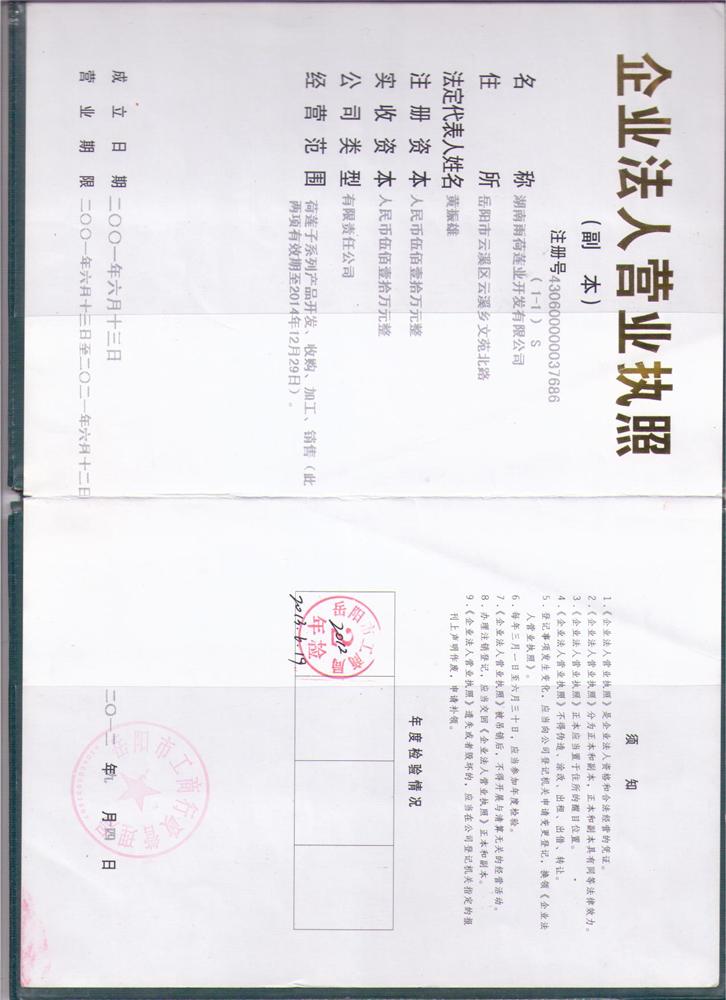 企业法人营业执照
(副 本)
注册号430600000037686
(1-1) S
名 称 湖南雨荷莲业开发有限公司
住 所 岳阳市云溪区云溪乡文苑北路
法定代表人姓名 黄振雄
注册资本 人民币伍佰壹拾万元整
实收资本 人民币伍佰壹拾万元整
公司类型 有限责任公司
经营范围 荷莲子系列产品开发、收购、加工、销售(此
两项有效期至2014年12月29日)。
成立日期 二〇〇一年六月十三日
营业期限 二〇〇一年六月十三日至二〇二一年六月十二日
须 知
1.《企业法人营业执照》是企业法人资格和合法经营的凭证。
2.《企业法人营业执照》分为正本和副本,正本和副本具有同等法律效力。
3.《企业法人营业执照》正本应当置于住所的醒目位置。
4.《企业法人营业执照》不得伪造、涂改、出租、出借、转让。
5.登记事项发生变化,应当向公司登记机关申请变更登记,换领《企业法
人营业执照》。
6.每年三月一日至六月三十日,应当参加年度检验。
7.《企业法人营业执照》被吊销后,不得开展与清算无关的经营活动。
8.办理注销登记,应当交回《企业法人营业执照》正本和副本。
9.《企业法人营业执照》遗失或者毁坏的,应当在公司登记机关指定的报
刊上声明作废,申请补领。
年度检验情况
岳阳市工商局
2012
年检
2013.6.19
岳阳市工商行政管理局
二〇一二年九月十四日